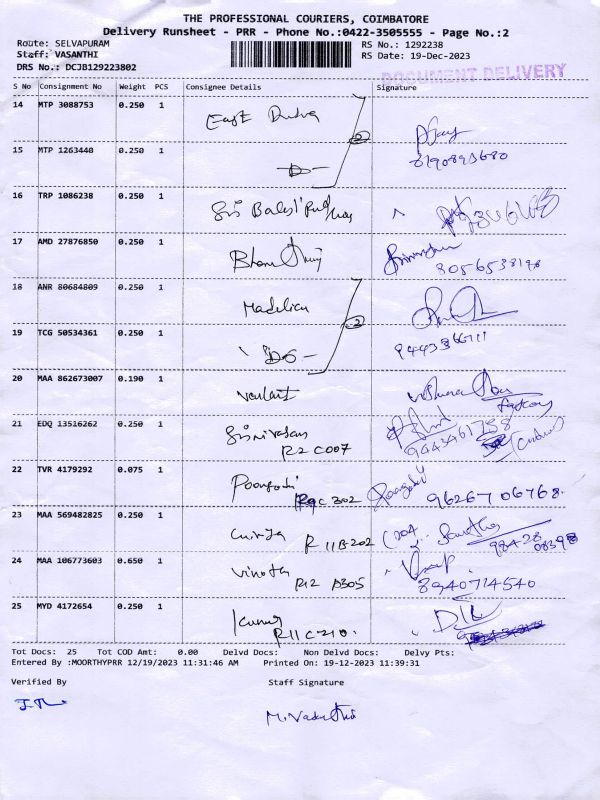 THE PROFESSIONAL COURIERS, COIMBATORE
Delivery Runsheet - PRR - Phone No.:0422-3505555 - Page No.:2
Route: SELVAPURAM
RS No.: 1292238
Staff: VASANTHI
RS Date: 19-Dec-2023
DRS No.: DCJB129223802
DOCUMENT DELIVERY
S No Consignment No Weight PCS Consignee Details Signature
14 MTP 3088753 0.250 1 East
2
15 MTP 1263440 0.250 1
8190893680
16 TRP 1086238 0.250 1 Sri Balaji
17 AMD 27876850 0.250 1
8056538198
18 ANR 80684809 0.250 1
2
19 TCG 50534361 0.250 1 - Do -
20 MAA 862673007 0.190 1
21 EDQ 13516262 0.250 1 Srinivasan
R2 C007
22 TVR 4179292 0.075 1 C302 96267 06768.
23 MAA 569482825 0.250 1 R 11B202
98428 08398
24 MAA 106773603 0.650 1 Vinoth R12 A305 8940714540
25 MYD 4172654 0.250 1 R11C210.
Tot Docs: 25 Tot COD Amt: 0.00 Delvd Docs: Non Delvd Docs: Delvy Pts:
Entered By :MOORTHYPRR 12/19/2023 11:31:46 AM Printed On: 19-12-2023 11:39:31
Verified By Staff Signature